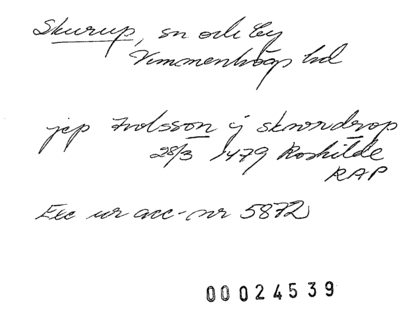 Skurup, sn och by
Vemmenhögs hd
jep Trolsson j skrordrop
28/3 1479 Roskilde
RAP
Exc ur acc-nr 5872
00024539